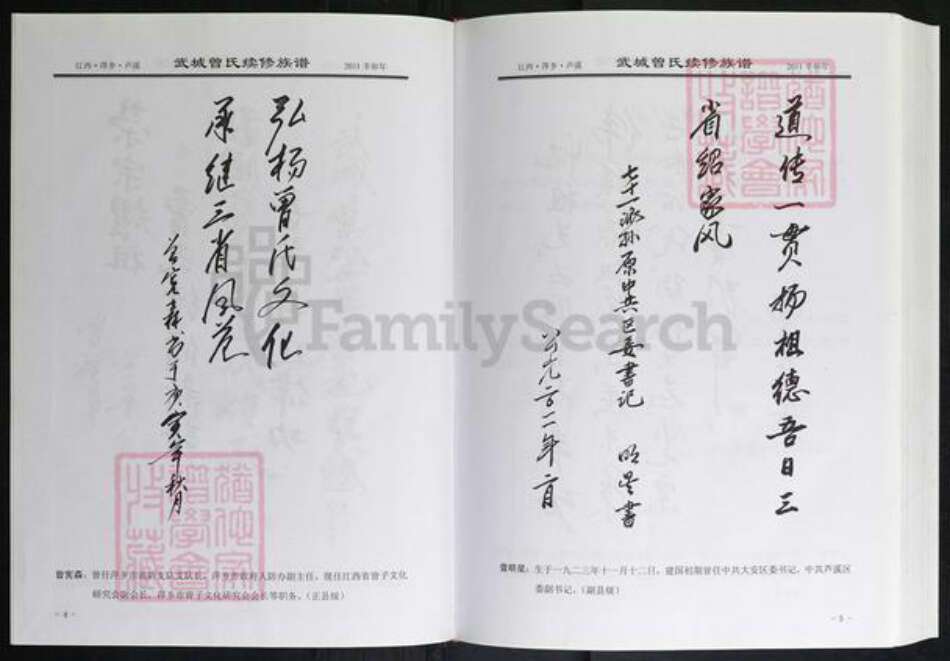 江西·萍乡·芦溪 武城曾氏续修族谱 2011辛卯年
弘杨曾氏文化
承继三省风范
书于庚寅年秋月
曾宪森：曾任萍乡市消防支队支队长，萍乡市政府人防办副主任，现任江西省曾子文化
研究会副会长，萍乡市曾子文化研究会会长等职务。（正县级）
- 4 -
江西·萍乡·芦溪 武城曾氏续修族谱 2011辛卯年
道传一贯扬祖德吾日三
省绍家风
七十一派孙原中共区委书记 明星书
公元二〇一一年二月
曾明星：生于一九二三年十一月十二日，建国初期曾任中共大安区委书记，中共芦溪区
委副书记。（副县级）
- 5 -
FamilySearch